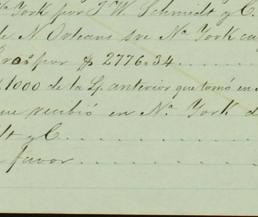 York por J. W. Schmidt y C.
de N. Orleans sre N. York
por $ 2776.34
1000 de la Lp. anterior que tomó en
que recibió en Na. York
y C.
favor